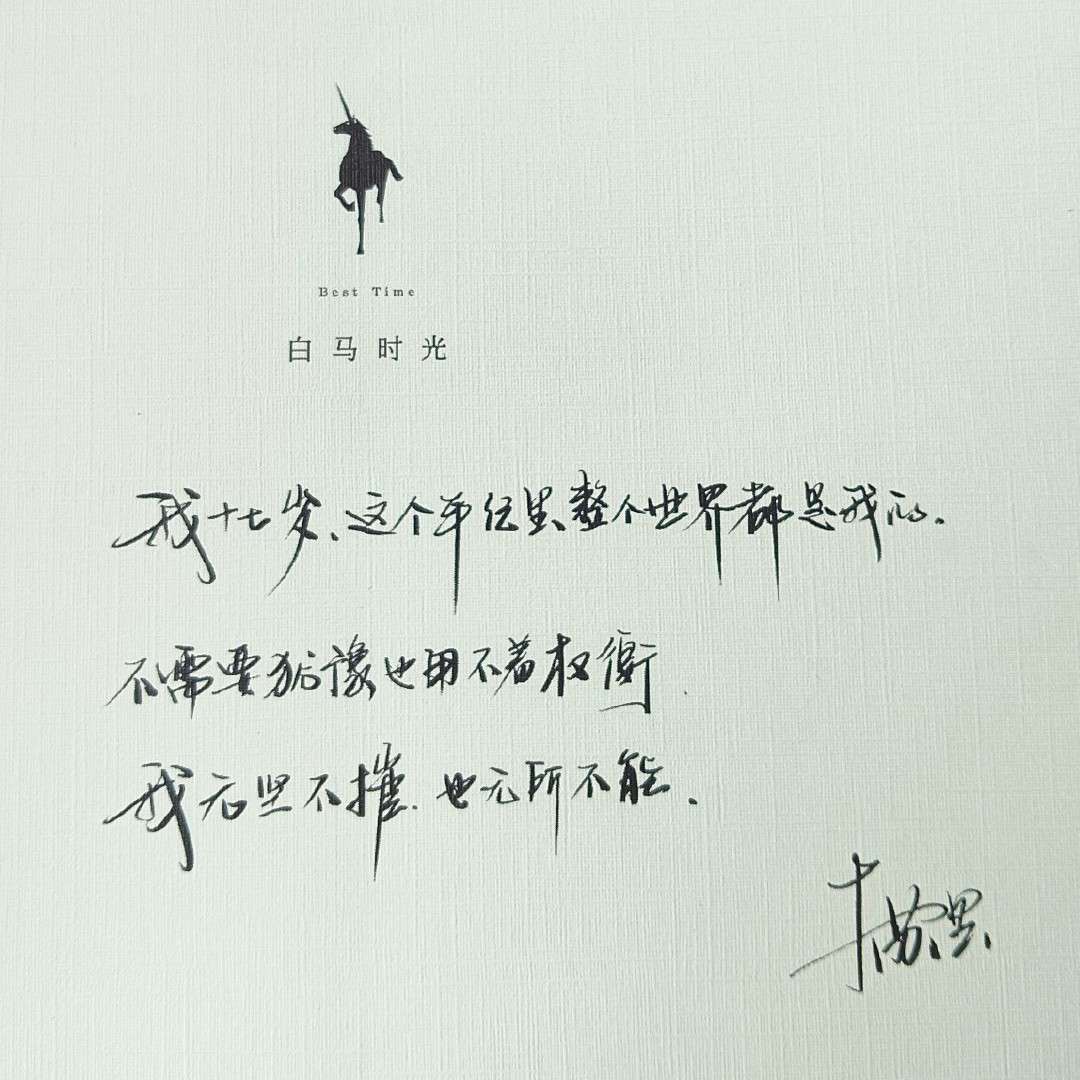 Best Time
白马时光
我十七岁、这个年纪里整个世界都是我的.
不需要犹豫也用不着权衡
我无坚不摧.也无所不能.
木苏里